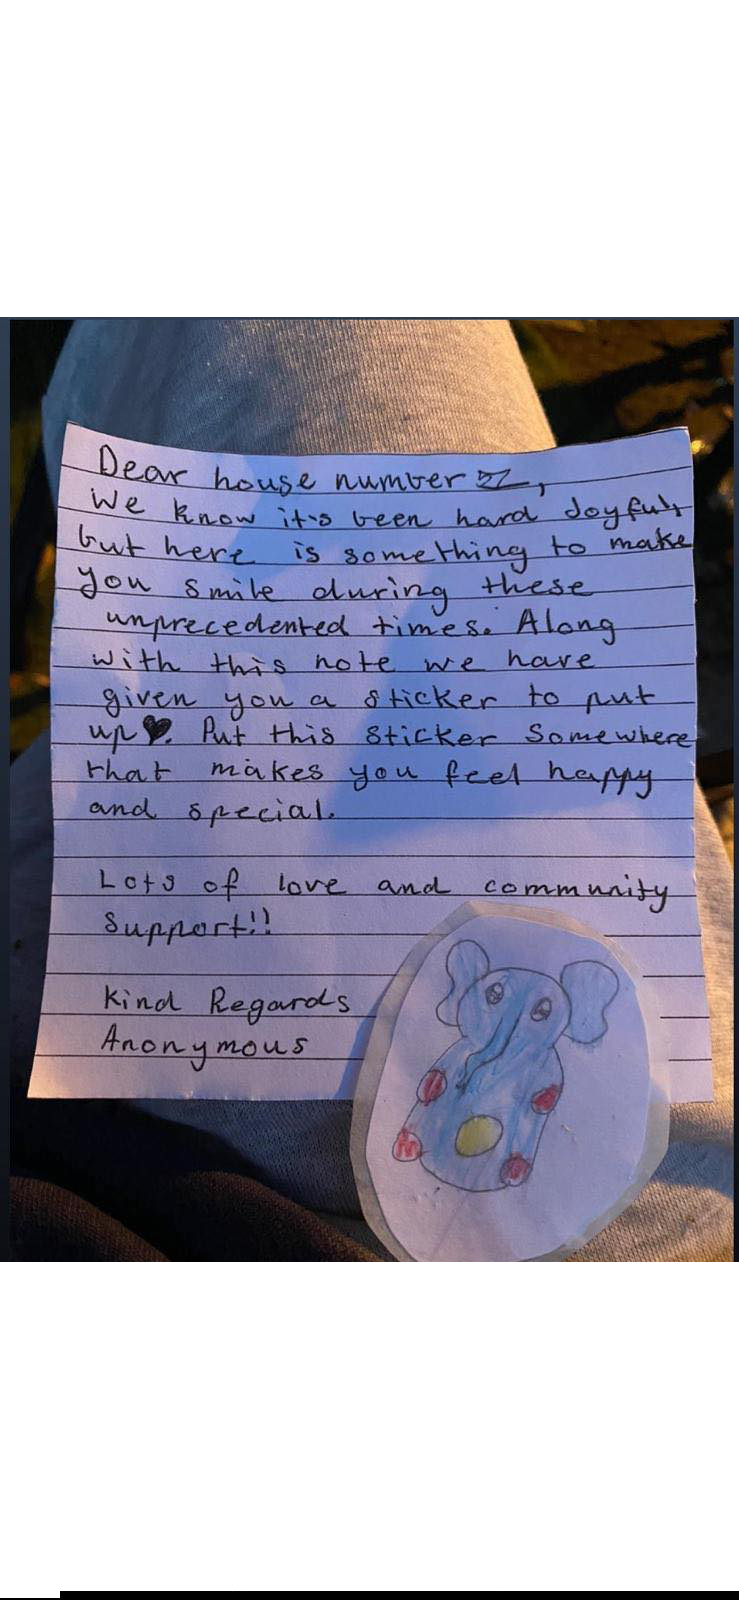 Dear house number 22,
We know it's been hard Joyfully
but here is something to make
you smile during these
unprecedented times. Along
with this note we have
given you a sticker to put
up♥. Put this sticker Somewhere
that makes you feel happy
and special.
Lots of love and community
Support!!
Kind Regards
Anonymous